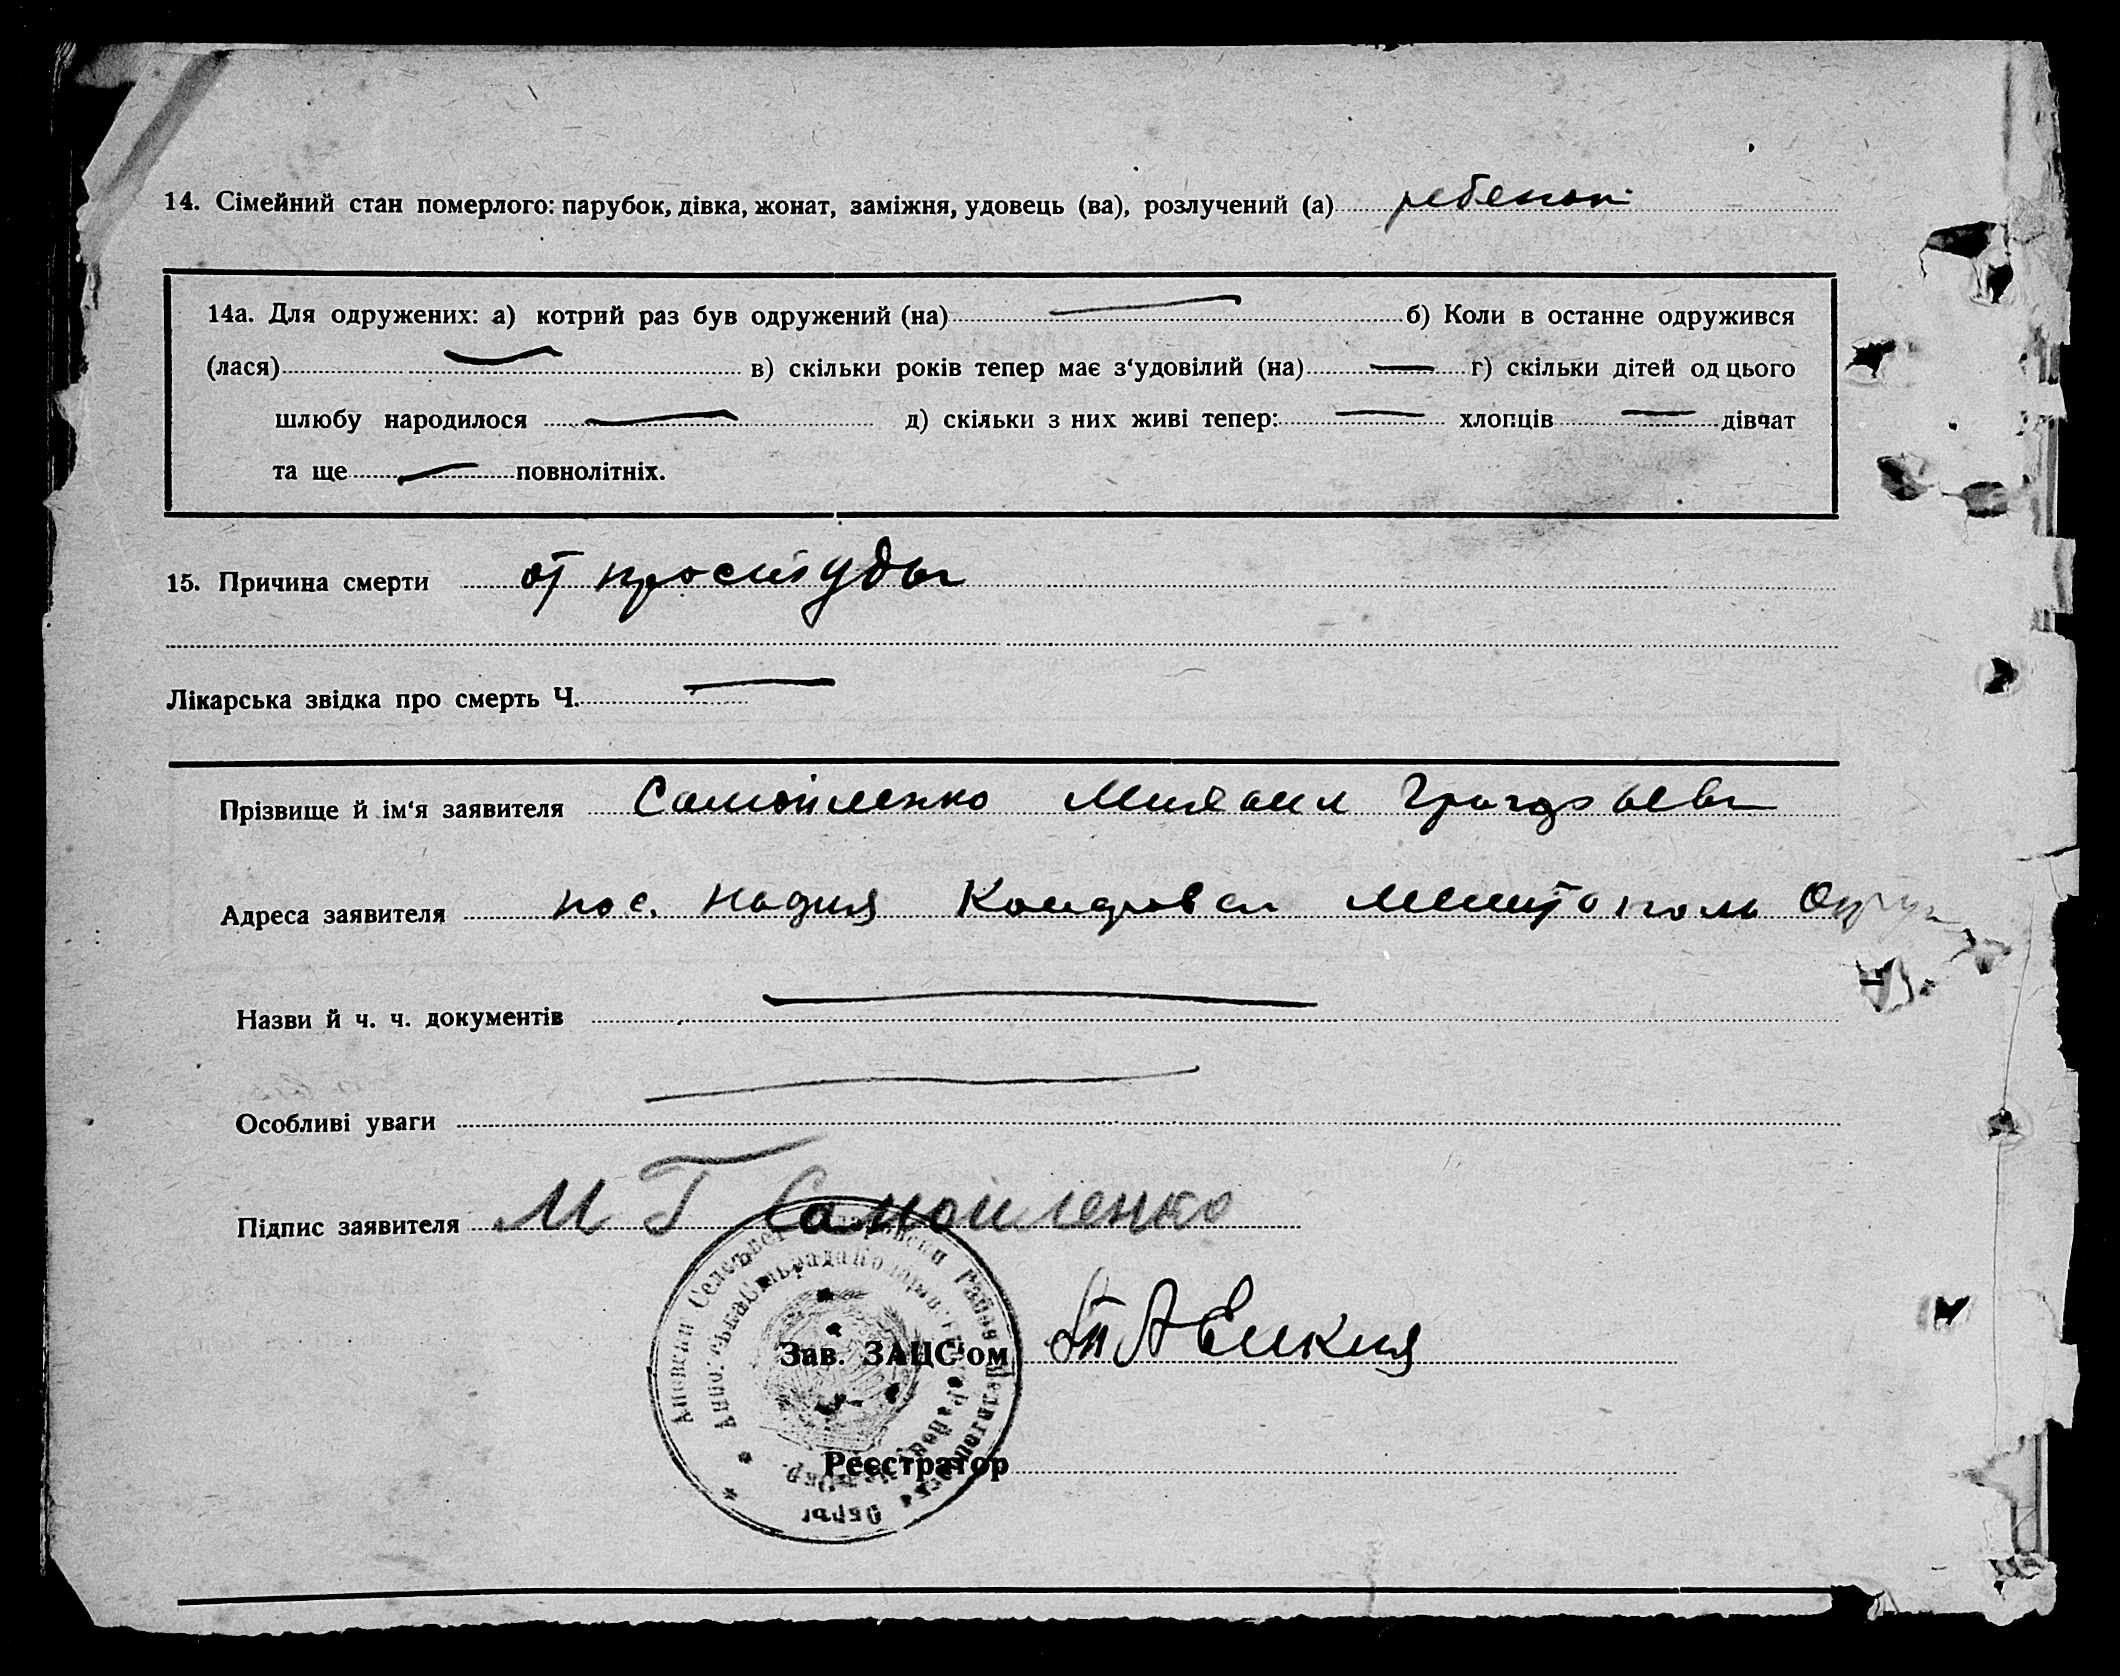 14. Сімейний стан померлого: парубок, дівка, жонат, заміжня, удовець (ва), розлучений (а) ребенок
14а. Для одружених: а) котрий раз був одружений (на) б) Коли в останне одружився
(лася) в) скільки років тепер має з'удовілий (на) г) скільки дітей од цього
шлюбу народилося д) скільки з них живі тепер: хлопців дівчат
та ще повнолітніх.
15. Причина смерти от простуды
Лікарська звідка про смерть Ч.
Прізвище й ім'я заявителя Самойленко Михаил
Адреса заявителя пос. Надия
Назви й ч. ч. документів
Особливі уваги
Підпис заявителя М Г Самойленко
Зав. ЗАЦС'ом
Реєстратор